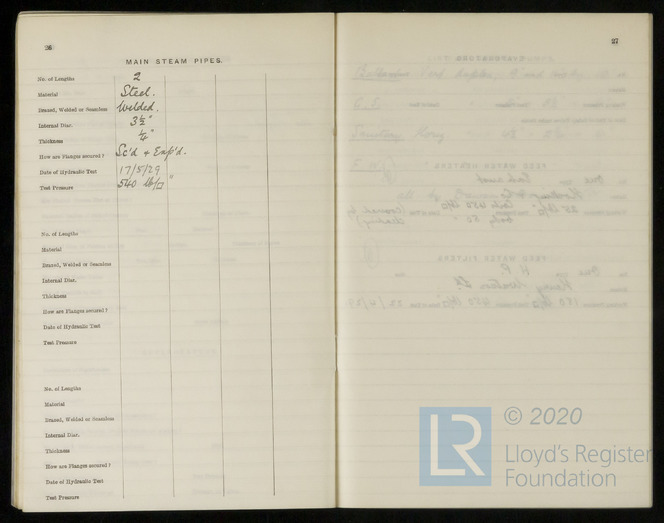 26
MAIN STEAM PIPES.
No. of Lengths 2
Material Steel.
Brazed, Welded or Seamless Welded.
Internal Diar. 3½"
Thickness ¼"
How are Flanges secured? Sc'd & Exp'd.
Date of Hydraulic Test 17/5/29
Test Pressure 540 lb/□"
No. of Lengths
Material
Brazed, Welded or Seamless
Internal Diar.
Thickness
How are Flanges secured?
Date of Hydraulic Test
Test Pressure
No. of Lengths
Material
Brazed, Welded or Seamless
Internal Diar.
Thickness
How are Flanges secured?
Date of Hydraulic Test
Test Pressure
27
LR
© 2020
Lloyd's Register
Foundation